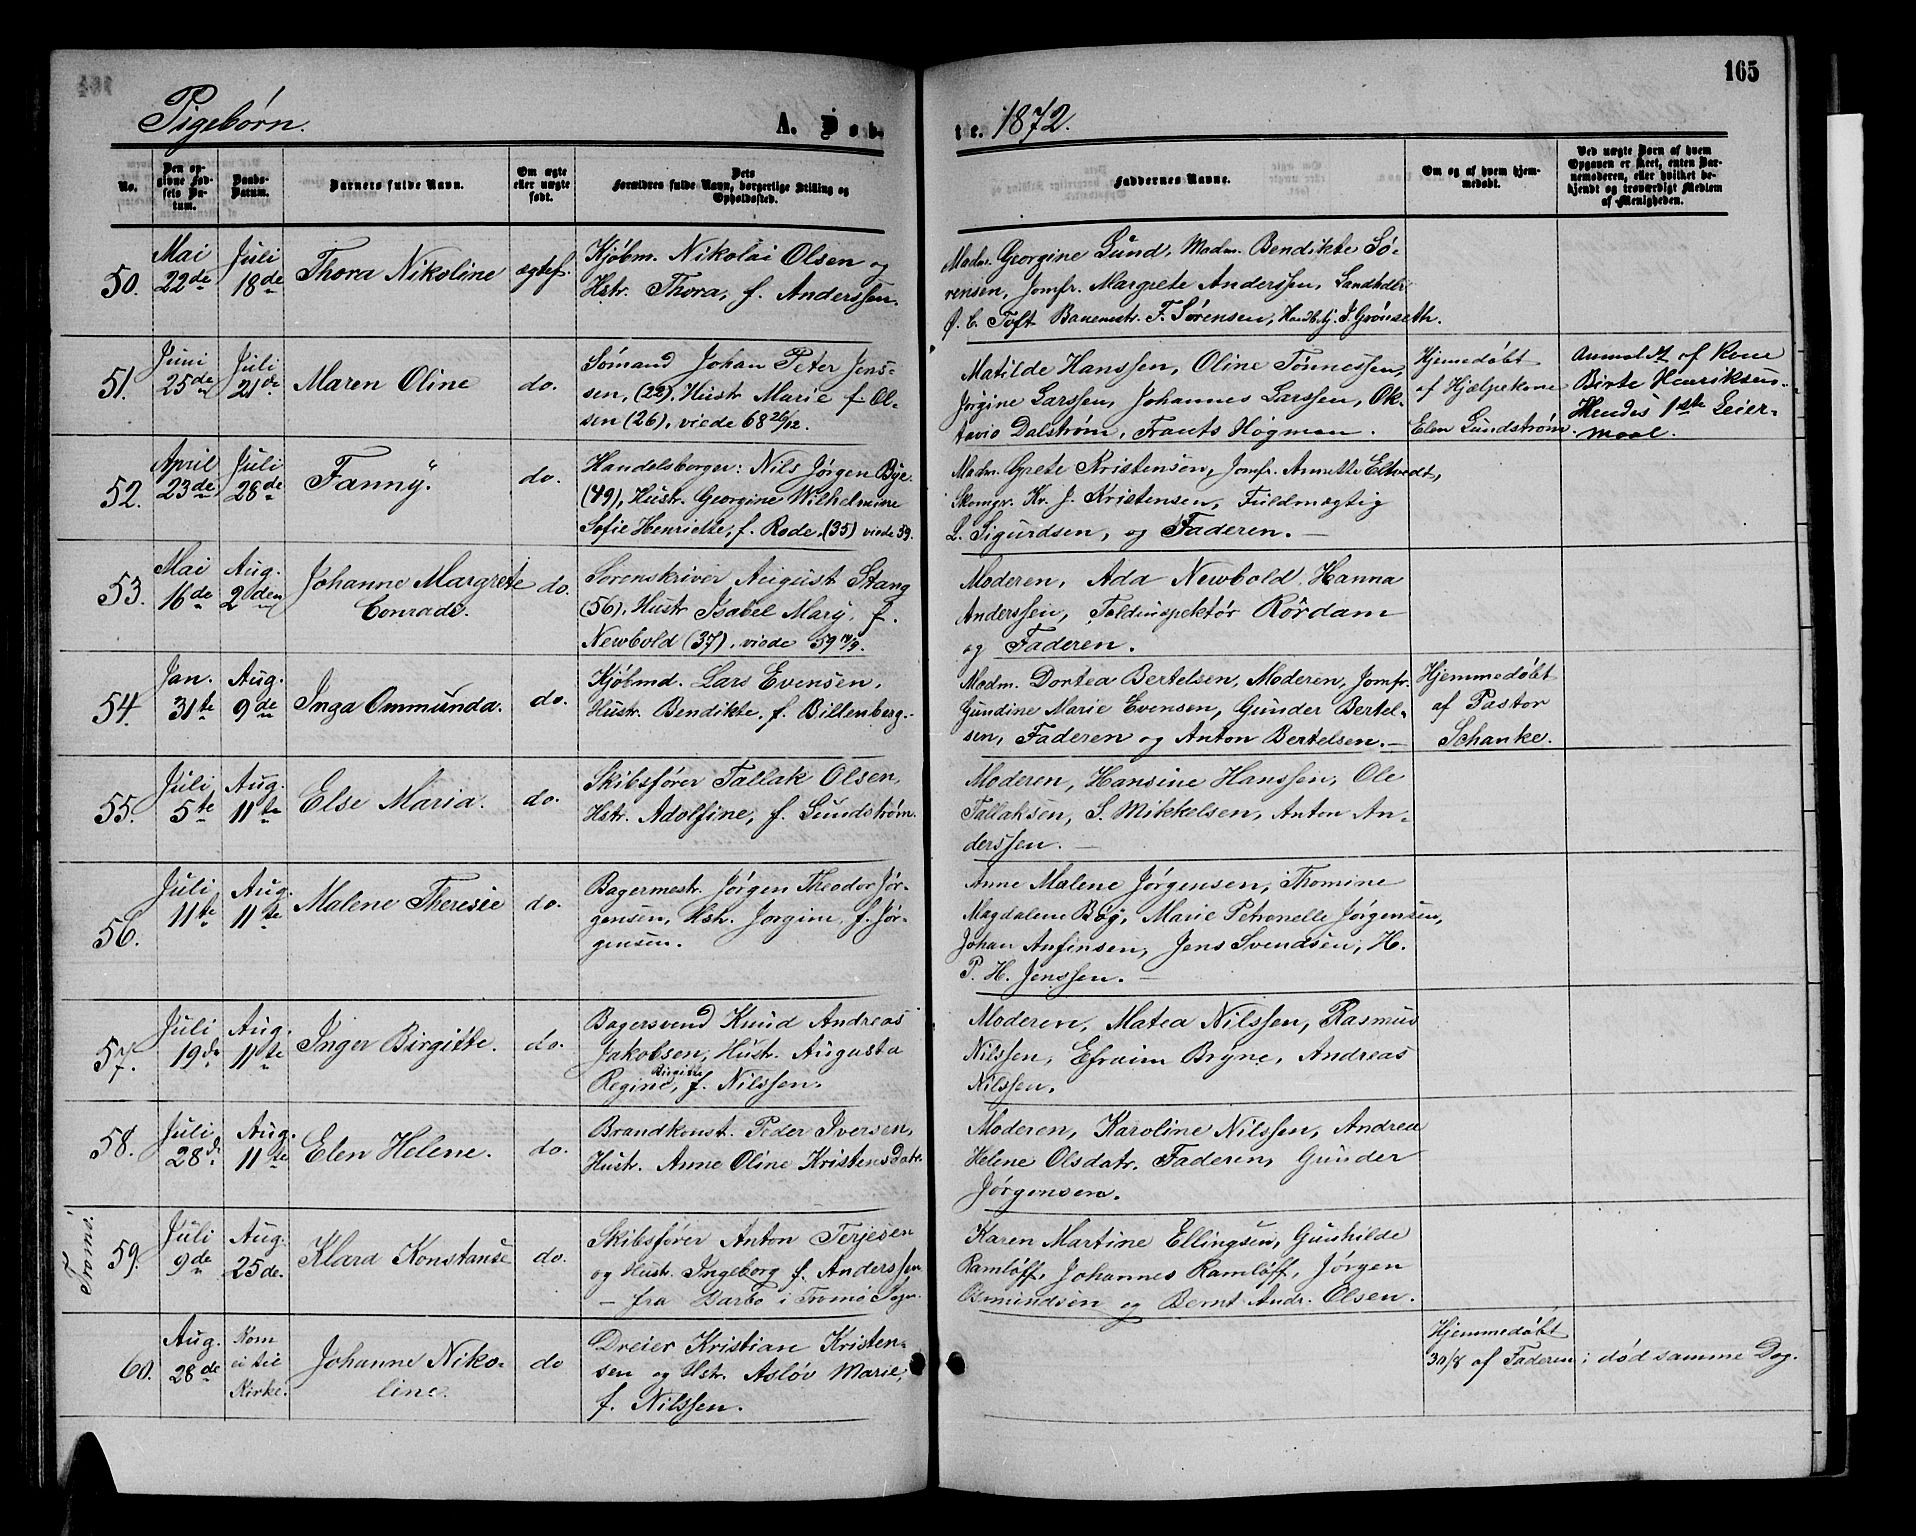 165
Pigebørn.
A. Døb-
te. 1872.
No.
Den op-
givne Fød-
sels Da-
tum.
Daabs-
Datum.
Barnets fulde Navn.
Om ægte
eller uægte
født.
Dets
Forældres fulde Navn, borgerlige Stilling og
Opholdssted.
Faddernes Navne.
Om og af hvem hjem-
medøbt.
Ved uægte Børn af hvem
Opgaven er skeet, enten Bar-
nemoderen, eller hvilket be-
kjendt og troværdigt Medlem
af Menigheden.
50.
Mai
22de
Juli
18de
Thora Nikoline
ægtef.
Kjøbm. Nikolai Olsen og
Hstr. Thora, f. Anderssen.
Madm. Georgine Lund, Madm. Bendikte Sø-
rensen, Jomfr. Margrete Anderssen, Landhdlr
O. C. Toft Banemstr. F. Sørensen, Handbetj. J. Grønseth.
51.
Juni
25de
Juli
21de
Maren Oline
do.
Sømand Johan Peter Jens-
sen, (22), Hustr. Marie f. Ol-
sen (26), viede 68 26/12.
Matilde Hanssen, Oline Tønnessen,
Jørgine Larssen, Johannes Larssen, Ok-
tavio Dalstrøm, Frants Högman.
Hjemmedøbt
af Hjælpekone
Elen Lundstrøm.
Anmeldt af Kone
Birte Henriksen.
Hendes 1ste Leier-
maal.
52.
April
23de
Juli
28de
Fanny.
do.
Handelsborger: Nils Jørgen Bye
(49), Hustr. Georgine Wilhelmine
Sofie Henriette, f. Rode, (35) viede 59.
Madm. Grete Kristensen, Jomfr. Annette Eikvedt,
Skomgr. Kr. J. Kristensen, Fuldmægtig
L. Sigurdsen, og Faderen.
53.
Mai
16de
Aug.
2den
Johanne Margrete
Conrade.
do.
Sorenskriver August Stang
(56), Hustr Isabel Mary, f.
Newbold (37), viede 59 14/9.
Moderen, Ada Newbold, Hanna
Anderssen, Toldinspektør Rördam
og Faderen.
54.
Jan.
31te
Aug.
9de
Inga Ommunda.
do.
Kjøbmd. Lars Evensen,
Hustr. Bendikte, f. Billenberg.
Madm. Dortea Bertelsen, Moderen, Jomfr.
Gundine Marie Evensen, Gunder Bertel-
sen, Faderen og Anton Bertelsen.
Hjemmedøbt
af Pastor
Schanke.
55.
Juli
5te
Aug.
11te
Else Maria.
do.
Skibsfører Tallak Olsen,
Hstr. Adolfine, f. Lundstrøm.
Moderen, Hansine Hanssen, Ole
Tallaksen, S. Mikkelsen, Anton An-
derssen.
56.
Juli
11te
Aug.
11te
Malene Theresie
do.
Bagermestr. Jørgen Theodor Jør-
gensen, Hstr. Jørgine, f. Jør-
gensen.
Anne Malene Jørgensen, Thomine
Magdalene Bøg, Marie Petronelle Jørgensen,
Johan Anfinsen, Jens Svendsen, H.
P. H. Jenssen.
57.
Juli
19de
Aug.
11te
Inger Birgitte.
do.
Bagersvend Knud Andreas
Jakobsen, Hustr. Augusta
Birgitte
Regine, f. Nilssen.
Moderen, Matea Nilssen, Rasmus
Nilssen, Efraim Bryne, Andreas
Nilssen.
58.
Juli
28de
Aug.
11te
Elen Helene.
do.
Brandkonst. Peder Iversen,
Hustr. Anne Oline Kristensdatr.
Moderen, Karoline Nilssen, Andrea
Helene Olsdatr. Faderen, Gunder
Jørgensen.
Tromö.
59.
Juli
9de
Aug.
25de.
Klara Konstanse
do.
Skibsfører Anton Terjesen
og Hustr. Ingeborg f. Anderssen
— fra Barbo i Tromö Sogn.
Karen Martine Ellingsen, Gunhilde
Ramløff, Johannes Ramløff, Jørgen
Osmundsen og Bernt Andr. Olsen.
60.
Aug.
28de
Kom
ei til
Kirke.
Johanne Niko-
line.
do
Dreier Kristian Kristen-
sen og Hstr. Asløv Marie,
f. Nilssen.
Hjemmedøbt
30/8 af Faderen; død samme Dag.